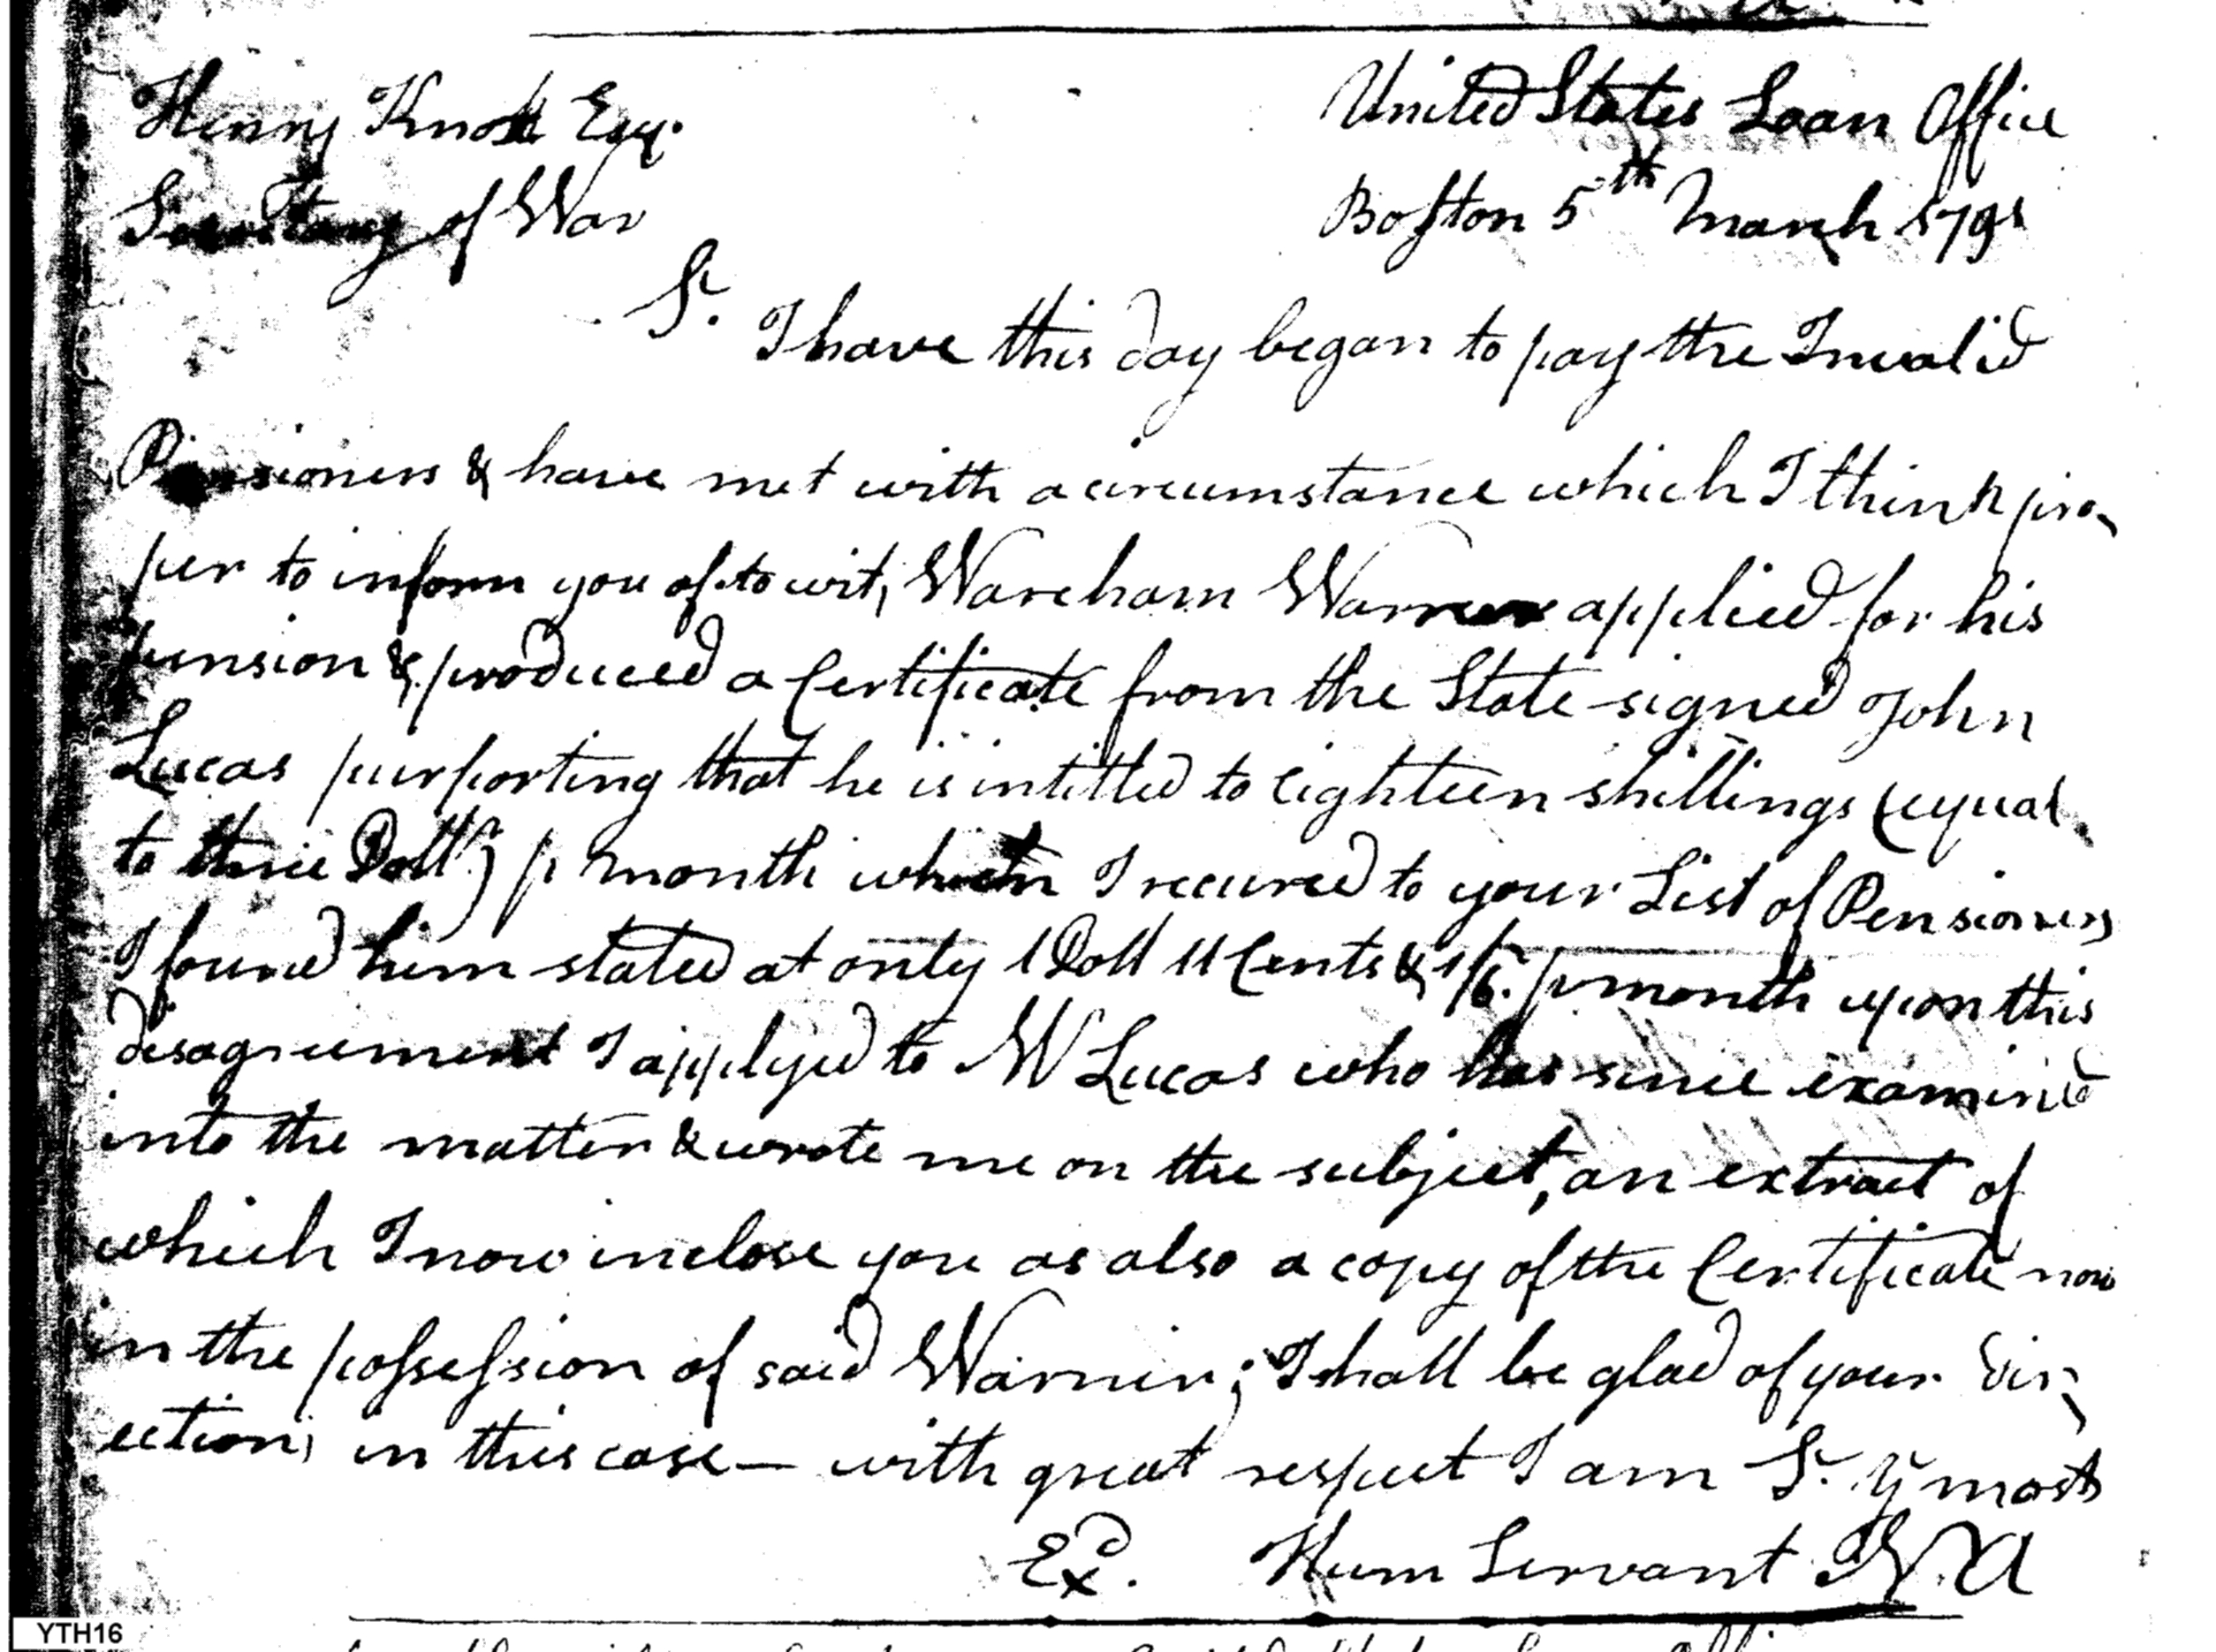 Henry Knox Esq.
United States Loan Office
Secretary of War
Boston 5th March 1791
Sr. I have this day began to pay the Invalid
Pensioners & have met with a circumstance which I think pro-
per to inform you of to wit, Wareham Warner applied for his
pension & produced a Certificate from the State signed John
Lucas purporting that he is intitled to Eighteen shillings (equal
to three Dollrs) pr month when I recured to your List of Pensioners
I found him stated at only 1 Doll 11 Cents & 1/6. pr month upon this
disagreement I applyed to Mr Lucas who has since examined
into the matter & wrote me on the subject, an extract of
which I now inclose you as also a copy of the Certificate now
in the possession of said Warner; I shall be glad of your dir-
ection, in this case— with great respect I am Sr. yr most
Exd. Hum Servant N.A
YTH16